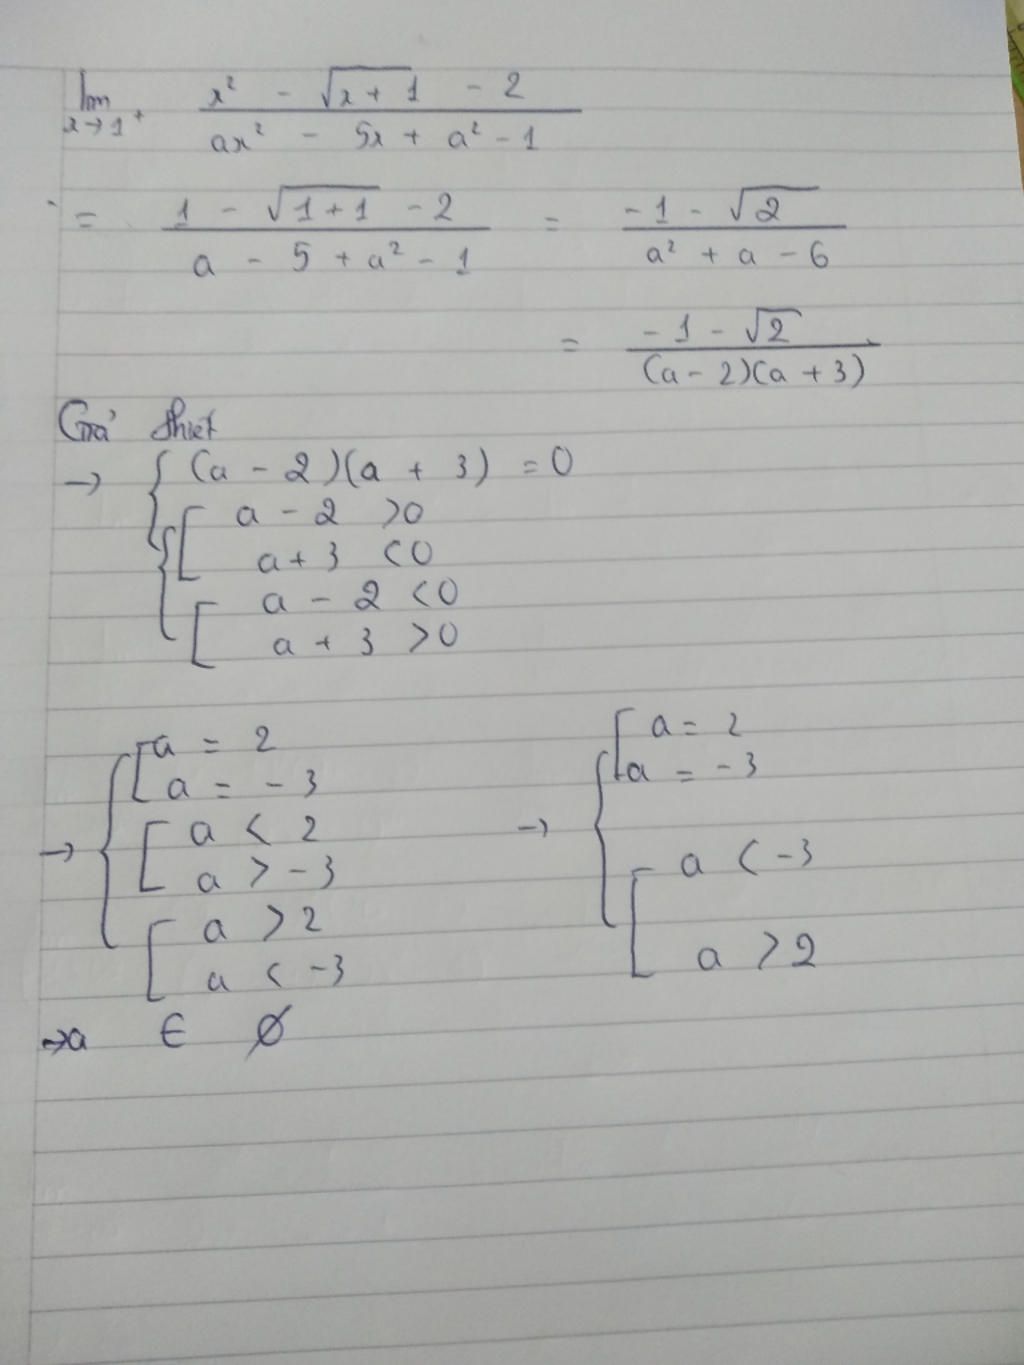 lim x→1⁺ (x² - √(x+1) - 2)/(ax² - 5x + a² - 1)
= (1 - √(1+1) - 2)/(a - 5 + a² - 1) = (-1 - √2)/(a² + a - 6)
= (-1 - √2)/((a - 2)(a + 3))
Giả thiết
→ { (a - 2)(a + 3) = 0
[ a - 2 > 0
a + 3 < 0
[ a - 2 < 0
a + 3 > 0
→ { [ a = 2
a = -3
[ a < 2
a > -3
[ a > 2
a < -3
→ { [ a = 2
a = -3
[ a < -3
a > 2
→ a ∈ ∅